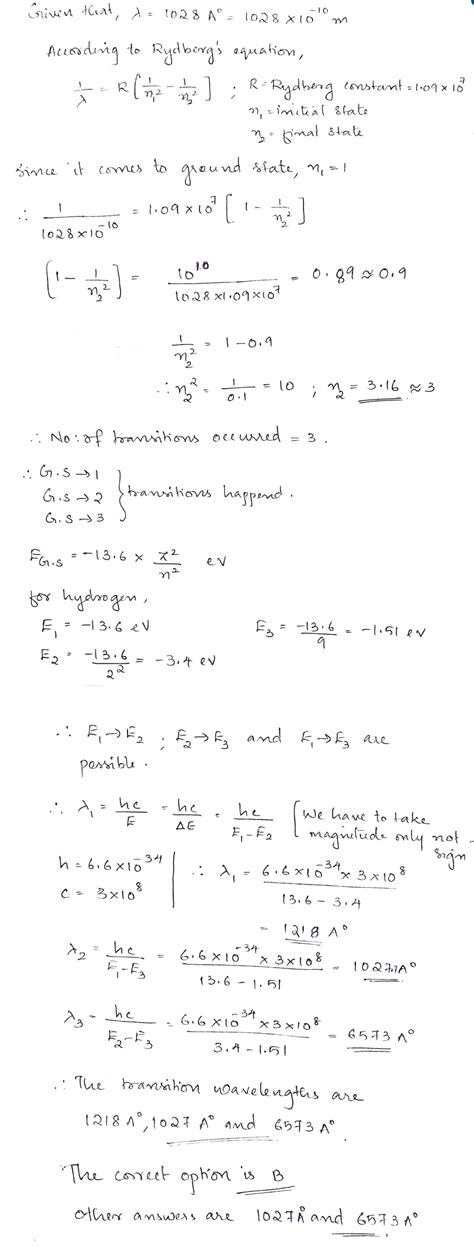 Given that, λ = 1028 A° = 1028 × 10⁻¹⁰ m
According to Rydberg's equation,
1/λ = R[1/n₁² - 1/n₂²] ; R = Rydberg constant = 1.09 × 10⁷
n₁ = initial state
n₂ = final state
Since it comes to ground state, n₁ = 1
∴ 1/(1028×10⁻¹⁰) = 1.09 × 10⁷ [1 - 1/n₂²]
(1 - 1/n₂²) = 10¹⁰/(1028×1.09×10⁷) = 0.89 ≈ 0.9
1/n₂² = 1 - 0.9
∴ n₂² = 1/0.1 = 10 ; n₂ = 3.16 ≈ 3
∴ No: of transitions occurred = 3.
∴ G.S → 1
G.S → 2 } transitions happend.
G.S → 3
E_G.S = -13.6 × z²/n² eV
for hydrogen,
E₁ = -13.6 eV E₃ = -13.6/9 = -1.51 eV
E₂ = -13.6/2² = -3.4 eV
∴ E₁ → E₂ ; E₂ → E₃ and E₁ → E₃ are
possible.
∴ λ₁ = hc/E = hc/ΔE = hc/(E₁-E₂) [We have to take
magnitude only not sign
h = 6.6 × 10⁻³⁴ ∴ λ₁ = (6.6×10⁻³⁴ × 3×10⁸)/(13.6 - 3.4)
c = 3×10⁸
= 1218 A°
λ₂ = hc/(E₁-E₃) = (6.6×10⁻³⁴ × 3×10⁸)/(13.6 - 1.51) = 1027.1A°
λ₃ = hc/(E₂-E₃) = (6.6×10⁻³⁴ × 3×10⁸)/(3.4 - 1.51) = 6573 A°
∴ The transition wavelengths are
1218 A°, 1027 A° and 6573 A°.
The correct option is B
Other answers are 1027A° and 6573 A°